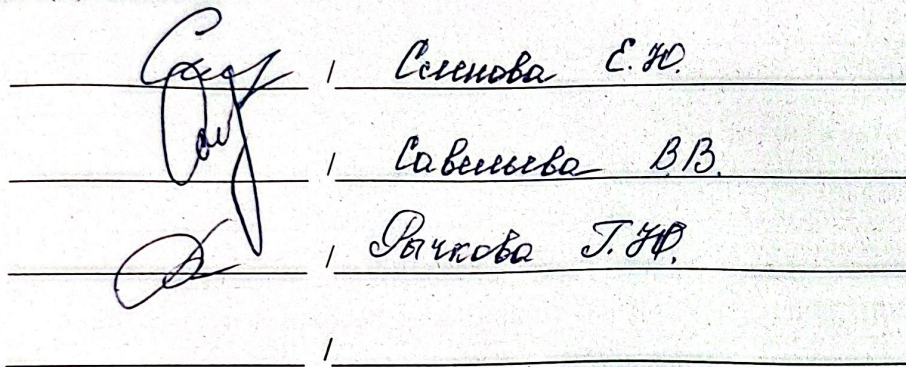 / Семенова Е.Ю.
/ Савельева В.В.
/ Рычкова Т.Ю.
/